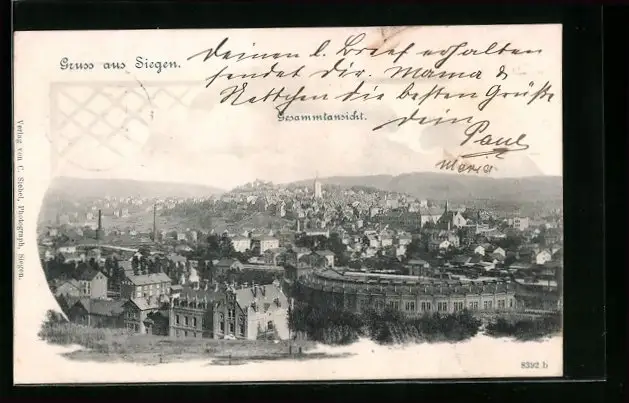 Gruss aus Siegen.
Deinen l. Brief erhalten
sendet Dir. Mama &
Nettchen die besten Grüße
dein
Paul
Maria
Gesammtansicht.
Verlag von C. Siebel, Photograph, Siegen.
8392 b